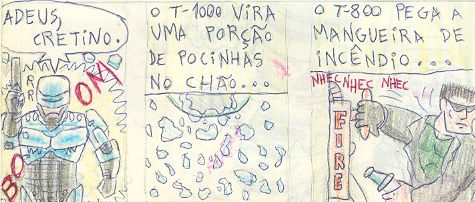 ADEUS,
CRETINO.
BO
OM
RR
O T-1000 VIRA
UMA PORÇÃO
DE POCINHAS
NO CHÃO...
O T-800 PEGA A
MANGUEIRA DE
INCÊNDIO...
NHEC NHEC NHEC
FIRE